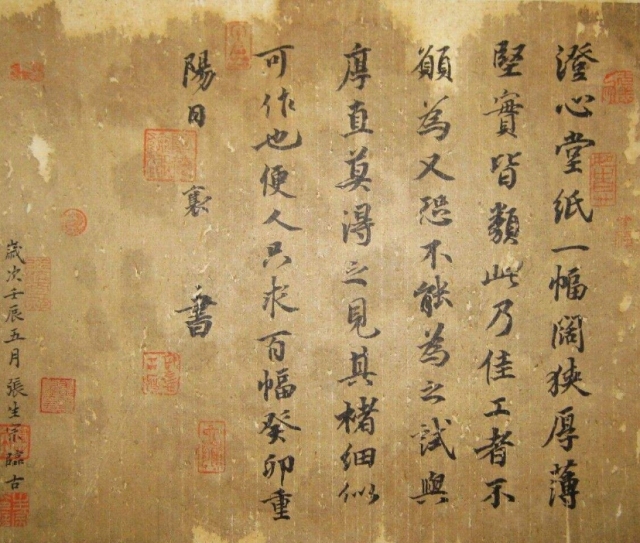 澄心堂紙一幅闊狹厚薄
堅實皆類此乃佳工者不
願為又恐不能為之試與
厚直莫得之見其楮細似
可作也便人只求百幅癸卯重
陽日 襄 書
歲次壬辰五月張生宗臨古